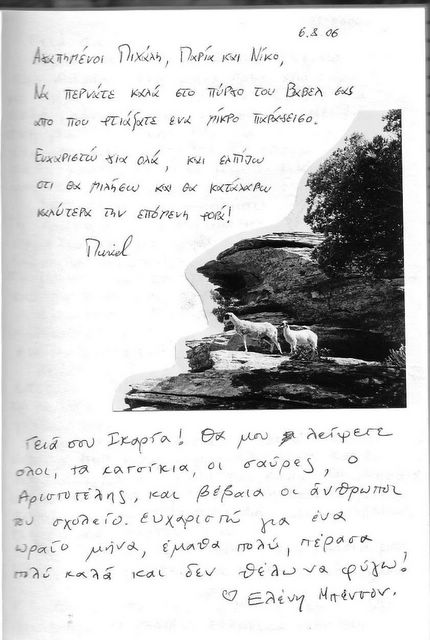 6.8.06
Αγαπημένοι Μιχάλη, Μαρία και Νίκο,
Να περνάτε καλά στο πύργο του Βαβελ σας
απο που φτιάξατε ενα μικρο παράδεισο.
Ευχαριστώ για ολά, και ελπίζω
οτι θα μιλήσω και θα καταλαβω
καλύτερα την επόμενη φορά!
Muriel
Γειά σου Ικαρία! Θα μου λείψετε
ολοι, τα κατσίκια, οι σαύρες, ο
Αριστοτέλης, και βέβαια οι άνθρωποι
του σχολείο. Ευχαριστώ για ένα
ωραίο μήνα, έμαθα πολύ, πέρασα
πολύ καλά και δεν θέλω να φύγω!
♡ Ελένη Μπένσον.